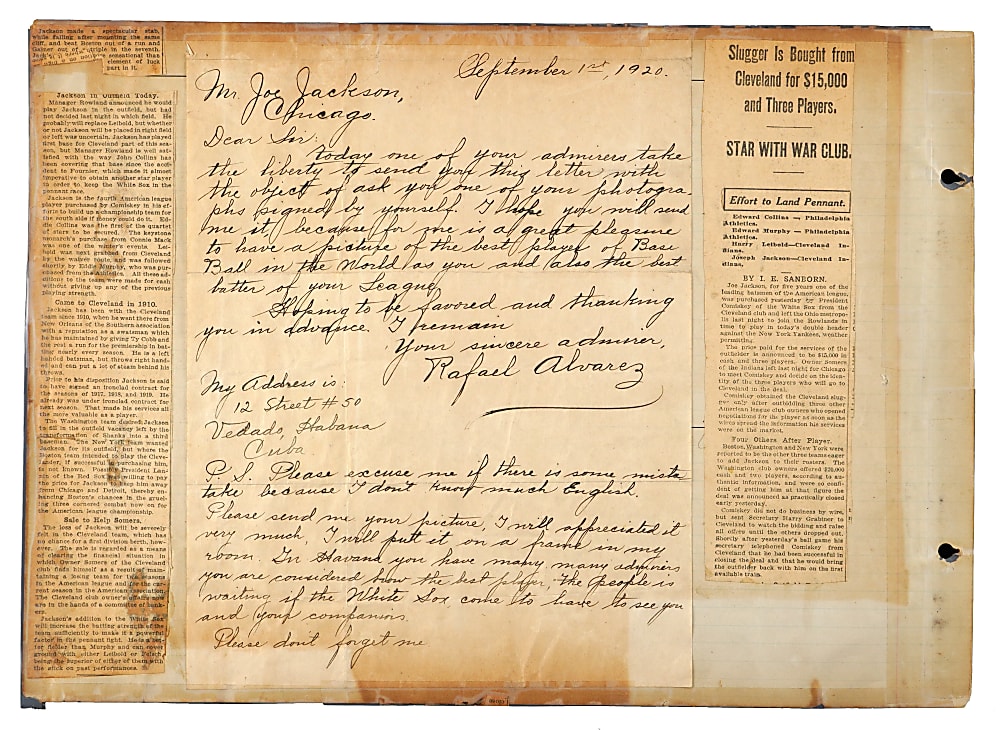 Jackson made a spectacular stab,
while falling after mounting the same
cliff, and beat Boston out of a run and
Gainer out of a triple in the seventh.
sensational than
element of luck
part in it.
Jackson in Outfield Today.
Manager Rowland announced he would
play Jackson in the outfield, but had
not decided last night in which field. He
probably will replace Leibold, but whether
or not Jackson will be placed in right field
or left was uncertain. Jackson has played
first base for Cleveland part of this sea-
son, but Manager Rowland is well sat-
isfied with the way John Collins has
been covering that base since the acci-
dent to Fournier, which made it almost
imperative to obtain another star player
in order to keep the White Sox in the
pennant race.
Jackson is the fourth American league
player purchased by Comiskey in his ef-
forts to build up a championship team for
the south side if money could do it. Ed-
die Collins was the first of the quartet
of stars to be secured. The keystone
monarch's purchase from Connie Mack
was one of the winter's events. Lei-
bold was next grabbed from Cleveland
by the waiver route, and was followed
shortly by Eddie Murphy, who was pur-
chased from the Athletics. All these ad-
ditions to the team were made for cash
without giving up any of the previous
playing strength.
Came to Cleveland in 1910.
Jackson has been with the Cleveland
team since 1910, when he went there from
New Orleans of the Southern association
with a reputation as a swatsman which
he has maintained by giving Ty Cobb and
the rest a run for the premiership in bat-
ting nearly every season. He is a left
handed batsman, but throws right hand-
ed and can put a lot of steam behind his
throws.
Prior to his disposition Jackson is said
to have signed an ironclad contract for
the seasons of 1917, 1918, and 1919. He
already was under ironclad contract for
next season. That made his services all
the more valuable as a player.
The Washington team desired Jackson
to fill in the outfield vacancy left by the
transformation of Shanks into a third
baseman. The New York team wanted
Jackson for its outfield, but where the
Boston team intended to play the Cleve-
lander, if successful in purchasing him,
is not known. Possibly President Lan-
nin of the Red Sox was willing to pay
the price for Jackson to keep him away
from Chicago and Detroit, thereby en-
hancing Boston's chances in the gruel-
ing three cornered combat now on for
the American league championship.
Sale to Help Somers.
The loss of Jackson will be severely
felt in the Cleveland team, which has
no chance for a first division berth, how-
ever. The sale is regarded as a means
of clearing the financial situation in
which Owner Somers of the Cleveland
club finds himself as a result of main-
taining a losing team for two seasons
in the American league and for the cur-
rent season in the American association.
The Cleveland club owner's affairs
are in the hands of a committee of bank-
ers.
Jackson's addition to the White Sox
will increase the batting strength of the
team sufficiently to make it a powerful
factor in the pennant fight. He is a bet-
ter fielder than Murphy and can cover
ground with either Leibold or Felsch,
being the superior of either of them with
the stick on past performances.
September 1st, 1920.
Mr. Joe Jackson,
Chicago.
Dear Sir:
today one of your admirers take
the liberty to send you this letter with
the object of ask you one of your photogra-
phs signed by yourself. I hope you will send
me it, because for me is a great pleasure
to have a picture of the best player of Base
Ball in the World as you and also the best
batter of your League.
Hoping to be favored and thanking
you in advance. I remain
Your sincere admirer,
Rafael Alvarez
My Address is:
12 Street # 50
Vedado, Habana
Cuba
P. S. Please excuse me if there is some mista-
take because I don't know much English.
Please send me your picture, I will appreciated it
very much, I will putt it on a frame in my
room. In Havana you have many many admirers
you are considered how the best player, the people is
waiting if the White Sox come to have to see you
and your companions.
Please don't forget me
Slugger Is Bought from
Cleveland for $15,000
and Three Players.
STAR WITH WAR CLUB.
Effort to Land Pennant.
Edward Collins — Philadelphia
Athletics.
Edward Murphy — Philadelphia
Athletics.
Harry Leibold—Cleveland In-
dians.
Joseph Jackson—Cleveland In-
dians.
BY I. E. SANBORN.
Joe Jackson, for five years one of the
leading batsmen of the American league,
was purchased yesterday by President
Comiskey of the White Sox from the
Cleveland club and left the Ohio metropo-
lis last night to join the Rowlands in
time to play in today's double header
against the New York Yankees, weather
permitting.
The price paid for the services of the
outfielder is announced to be $15,000 in
cash and three players. Owner Somers
of the Indians left last night for Chicago
to meet Comiskey and decide on the iden-
tity of the three players who will go to
Cleveland in the deal.
Comiskey obtained the Cleveland slug-
ger only after outbidding three other
American league club owners who opened
negotiations for the player as soon as the
wires spread the information his services
were on the market.
Four Others After Player.
Boston, Washington and New York were
reported to be the other three teams eager
to add Jackson to their rosters. The
Washington club owners offered $20,000
cash and two players, according to au-
thentic information, and were so confi-
dent of getting him at that figure the
deal was announced as practically closed
early yesterday.
Comiskey did not do business by wire,
but sent Secretary Harry Grabiner to
Cleveland to watch the bidding and raise
all offers until the others dropped out.
Shortly after yesterday's ball game his
secretary telephoned Comiskey from
Cleveland that he had been successful in
closing the deal and that he would bring
the outfielder back with him on the first
available train.